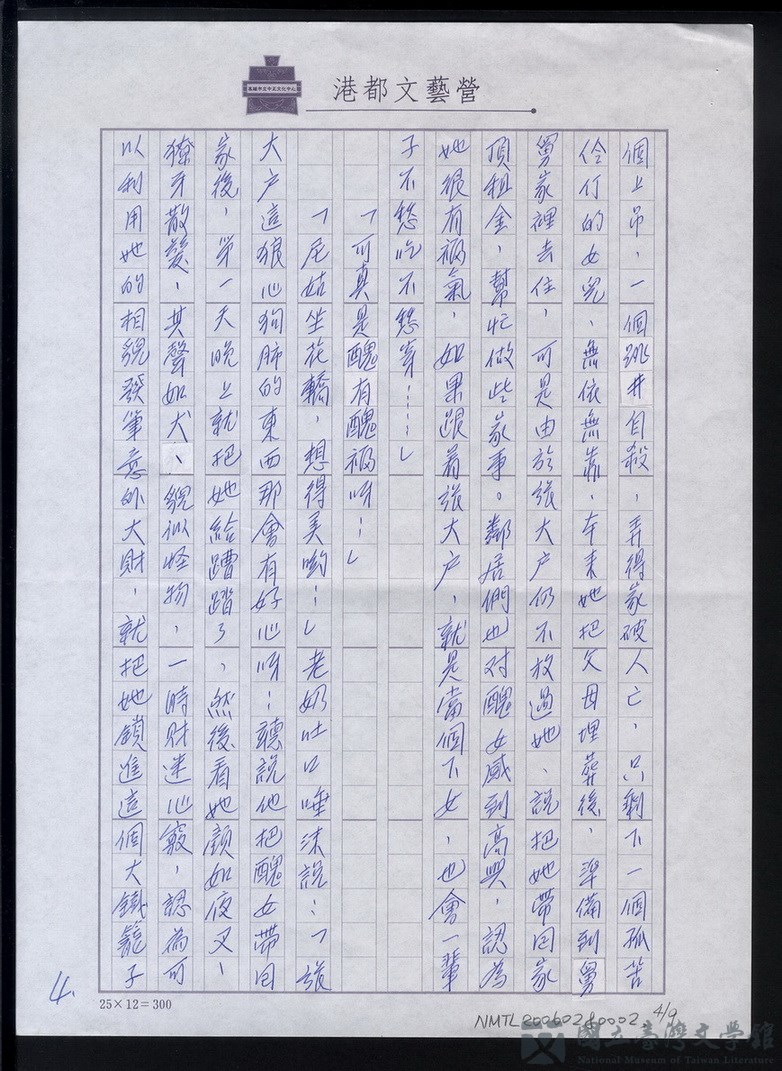 高雄市立中正文化中心
港都文藝營
個上吊，一個跳井自殺，弄得家破人亡，只剩下一個孤苦
伶仃的女兒，無依無靠，本來她把父母埋葬後，準備到舅
舅家裡去住，可是由於張大户仍不放過她，說把她帶回家
頂租金，幫忙做些家事。鄰居們也对醜女感到高興，認為
她很有褔氣，如果跟着張大户，就是當個下女，也會一輩
子不愁吃不愁穿……」
「可真是醜有醜褔呀…」
「尼姑坐花轎，想得美喲…」老奶吐口唾沫說：「張
大户這狼心狗肺的東西那會有好心呀…聽說他把醜女帶回
家後，第一天晚上就把她給蹧蹋了，然後看她顏如夜叉、
獠牙散髮，其聲如犬、貌似怪物，一時財迷心竅，認為可
以利用她的相貌發筆意外大財，就把她鎖進這個大鐵籠子
25×12＝300
4.
NMTL20060280002 4/9
國立臺灣文學館
National Museum of Taiwan Literature